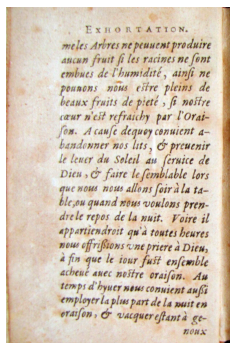 EXHORTATION.
me les Arbres ne peuuent produire
aucun fruit si les racines ne sont
embues de l'humidité, ainsi ne
pouuons nous estre pleins de
beaux fruits de pieté, si nostre
cœur n'est refraichy par l'Orai-
son. A cause dequoy conuient a-
bandonner nos lits, & preuenir
le leuer du Soleil au seruice de
Dieu, & faire le semblable lors
que nous nous allons soir à la ta-
ble, ou quand nous voulons pren-
dre le repos de la nuit. Voire il
appartiendroit qu'à toutes heures
nous offrissions vne priere à Dieu,
à fin que le iour fust ensemble
acheué auec nostre oraison. Au
temps d'hyuer nous conuient aussi
employer la plus part de la nuit en
oraison, & vacquer estant à ge-
noux